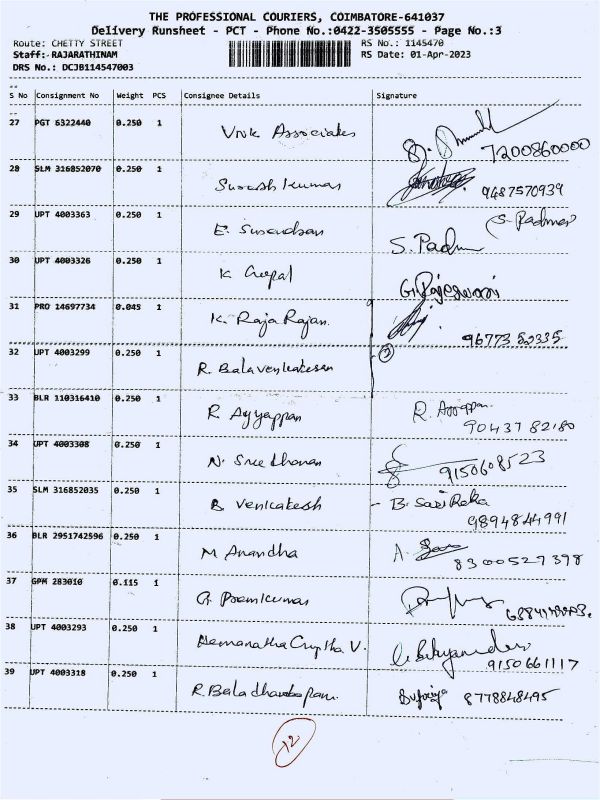 THE PROFESSIONAL COURIERS, COIMBATORE-641037
Delivery Runsheet - PCT - Phone No.:0422-3505555 - Page No.:3
Route: CHETTY STREET RS No.: 1145470
Staff:-RAJARATHINAM RS Date: 01-Apr-2023
DRS No.: DCJB114547003
S No Consignment No Weight PCS Consignee Details Signature
27 PGT 6322440 0.250 1 Vivek Associates 7200860000
28 SLM 316852070 0.250 1 Suresh Kumar 9487570939
29 UPT 4003363 0.250 1 E. S. Padma
S. Padm
30 UPT 4003326 0.250 1 K Gopal G. Rajeswari
31 PRO 14697734 0.045 1 K. Raja Rajan. 9677352335
32 UPT 4003299 0.250 1 R. Balavenkatesan 2
33 BLR 110316410 0.250 1 R Ayyappan R. Ayyappan
9043782180
34 UPT 4003308 0.250 1 N. Sreedharan 9150608523
35 SLM 316852035 0.250 1 B Venkatesh - B. Sasi Reka
9894844991
36 BLR 2951742596 0.250 1 M Anandha A. 8300527398
37 GPM 283010 0.115 1 G. Premkumar
38 UPT 4003293 0.250 1 Hemanatha Guptha V. 9150661117
39 UPT 4003318 0.250 1 R. Baladhandapani. 8778848495
12